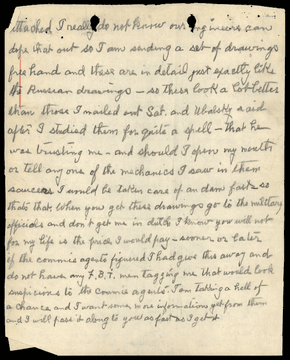 attached. I really do not know our engineers can
dope that out so I am sending a set of drawings
free hand and these are in detail just exactly like
the Russian drawings — so these look a lot better
than those I mailed out Sat. and said
after I studied them for quite a spell — that he
was trusting me — and should I open my mouth
or tell any one of the mechanics I saw in them
saucers I would be taken care of an dam fast — so
thats that. When you get these drawings go to the military
officials and don't get me in dutch I know you will not
for my life is the price I would pay — sooner or later
if the commie agents figured I had give this away and
do not have any F.B.I. men tagging me that would look
suspicious to the commie agents. I am taking a hell of
a chance and I want some more information get from them
and I will pass it along to you as fast as I get it